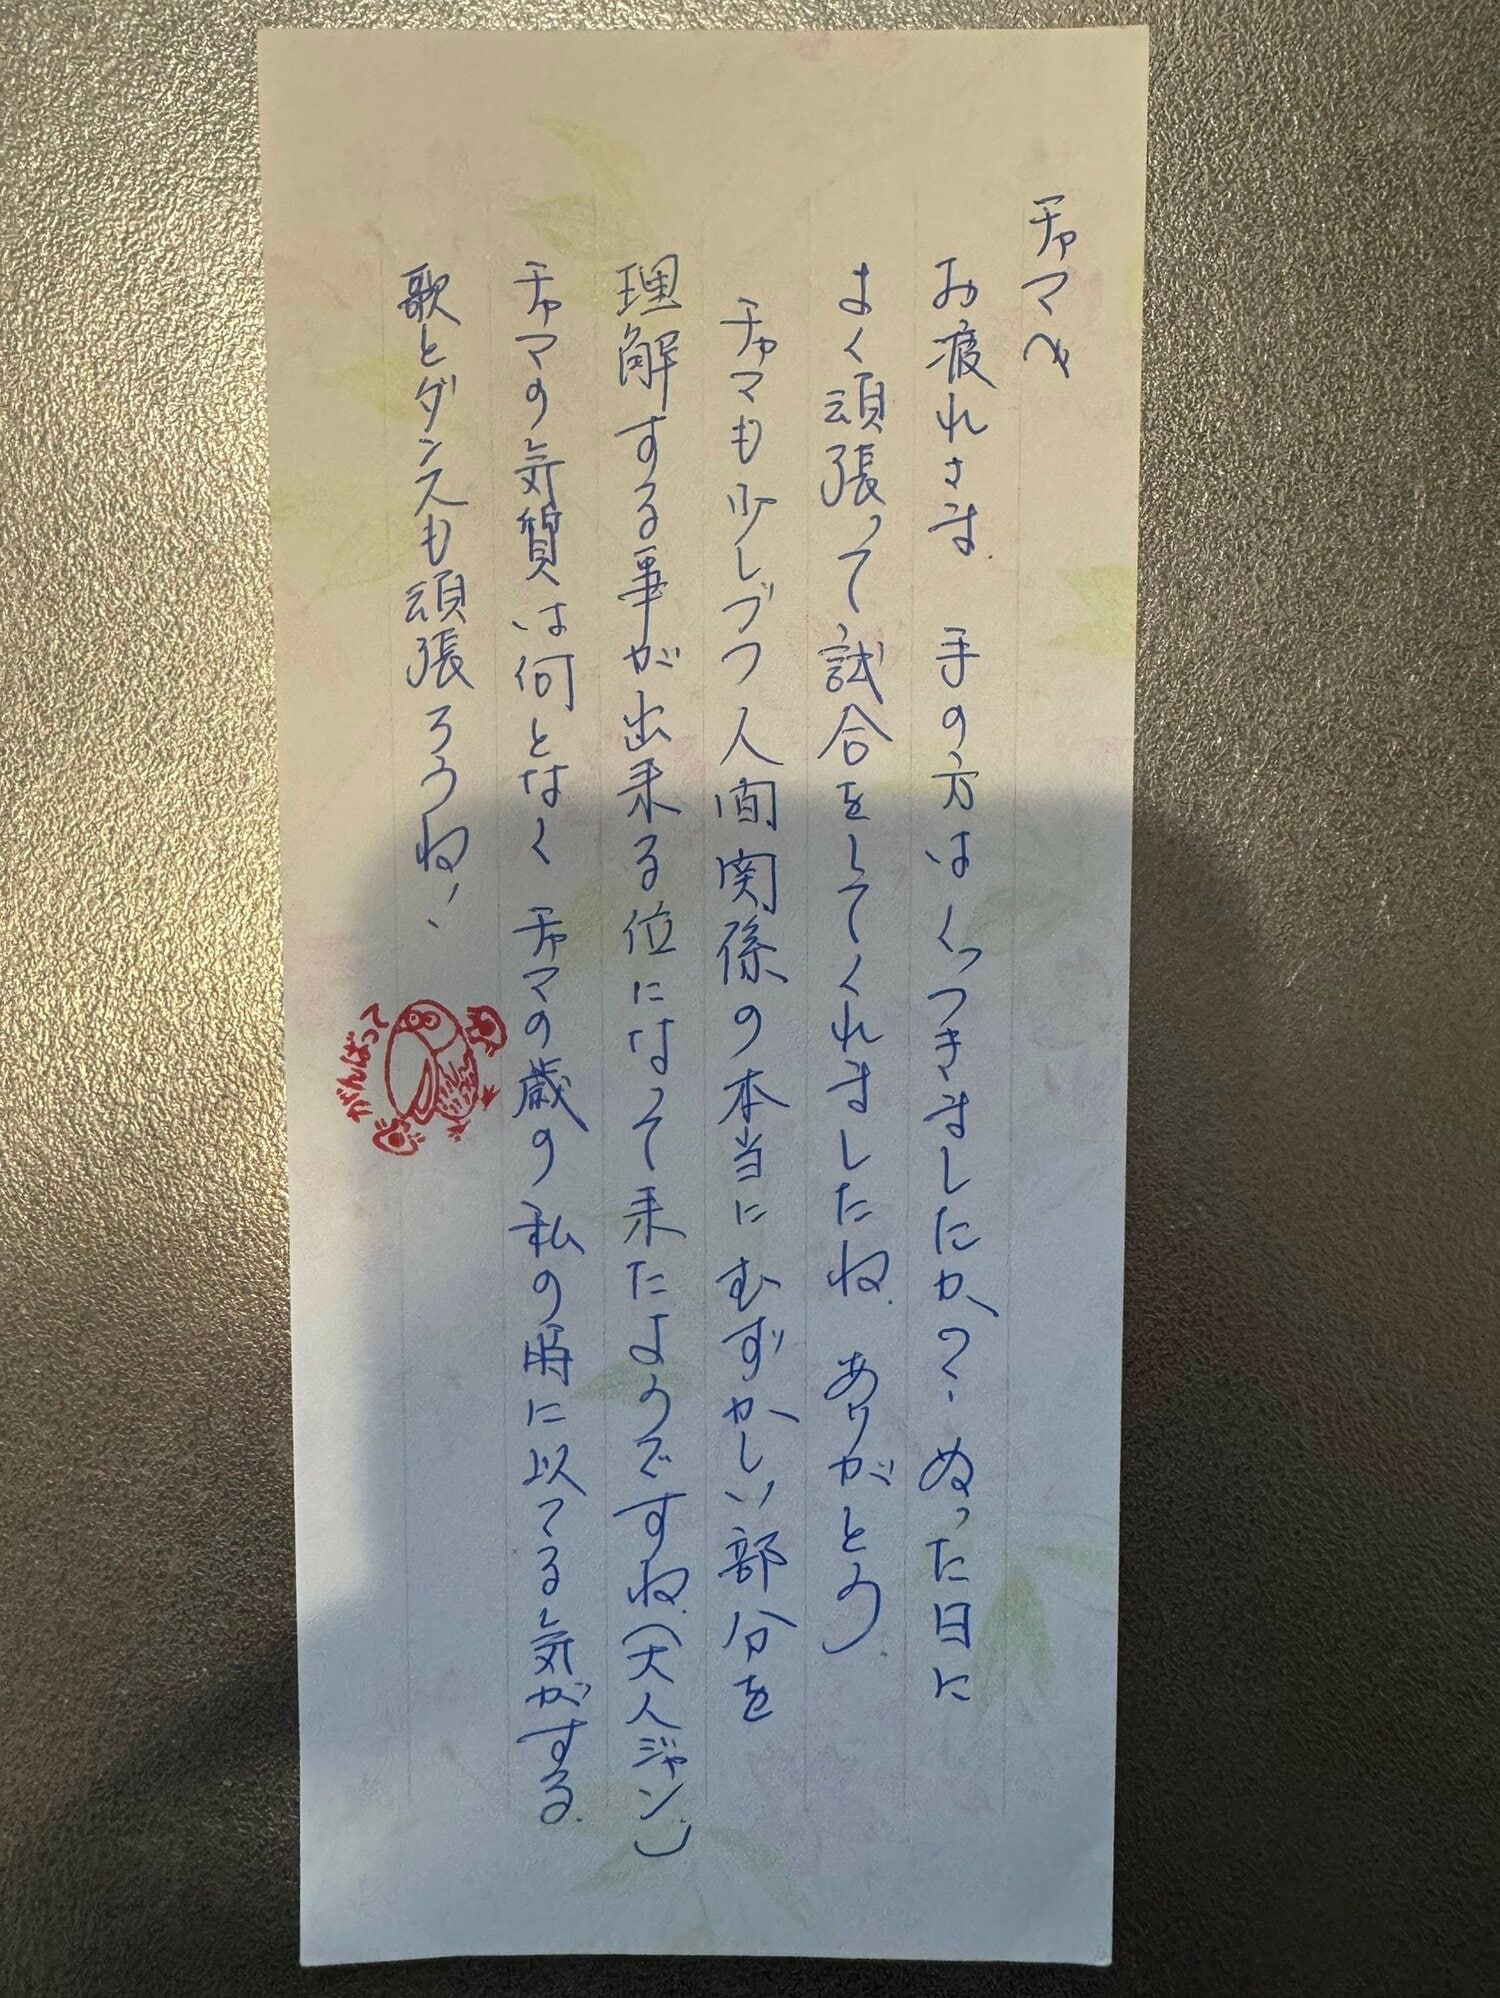 チャマへ
お疲れさま。手の方はくっつきましたか？ぬった日に
よく頑張って試合をしてくれましたね。ありがとう。
チャマも少しづつ人間関係の本当にむずかしい部分を
理解する事が出来る位になって来たようですね。（大人ジャン。）
チャマの気質は何となくチャマの歳の私の時に以てる気がする。
歌とダンスも頑張ろうね!!
がんばって